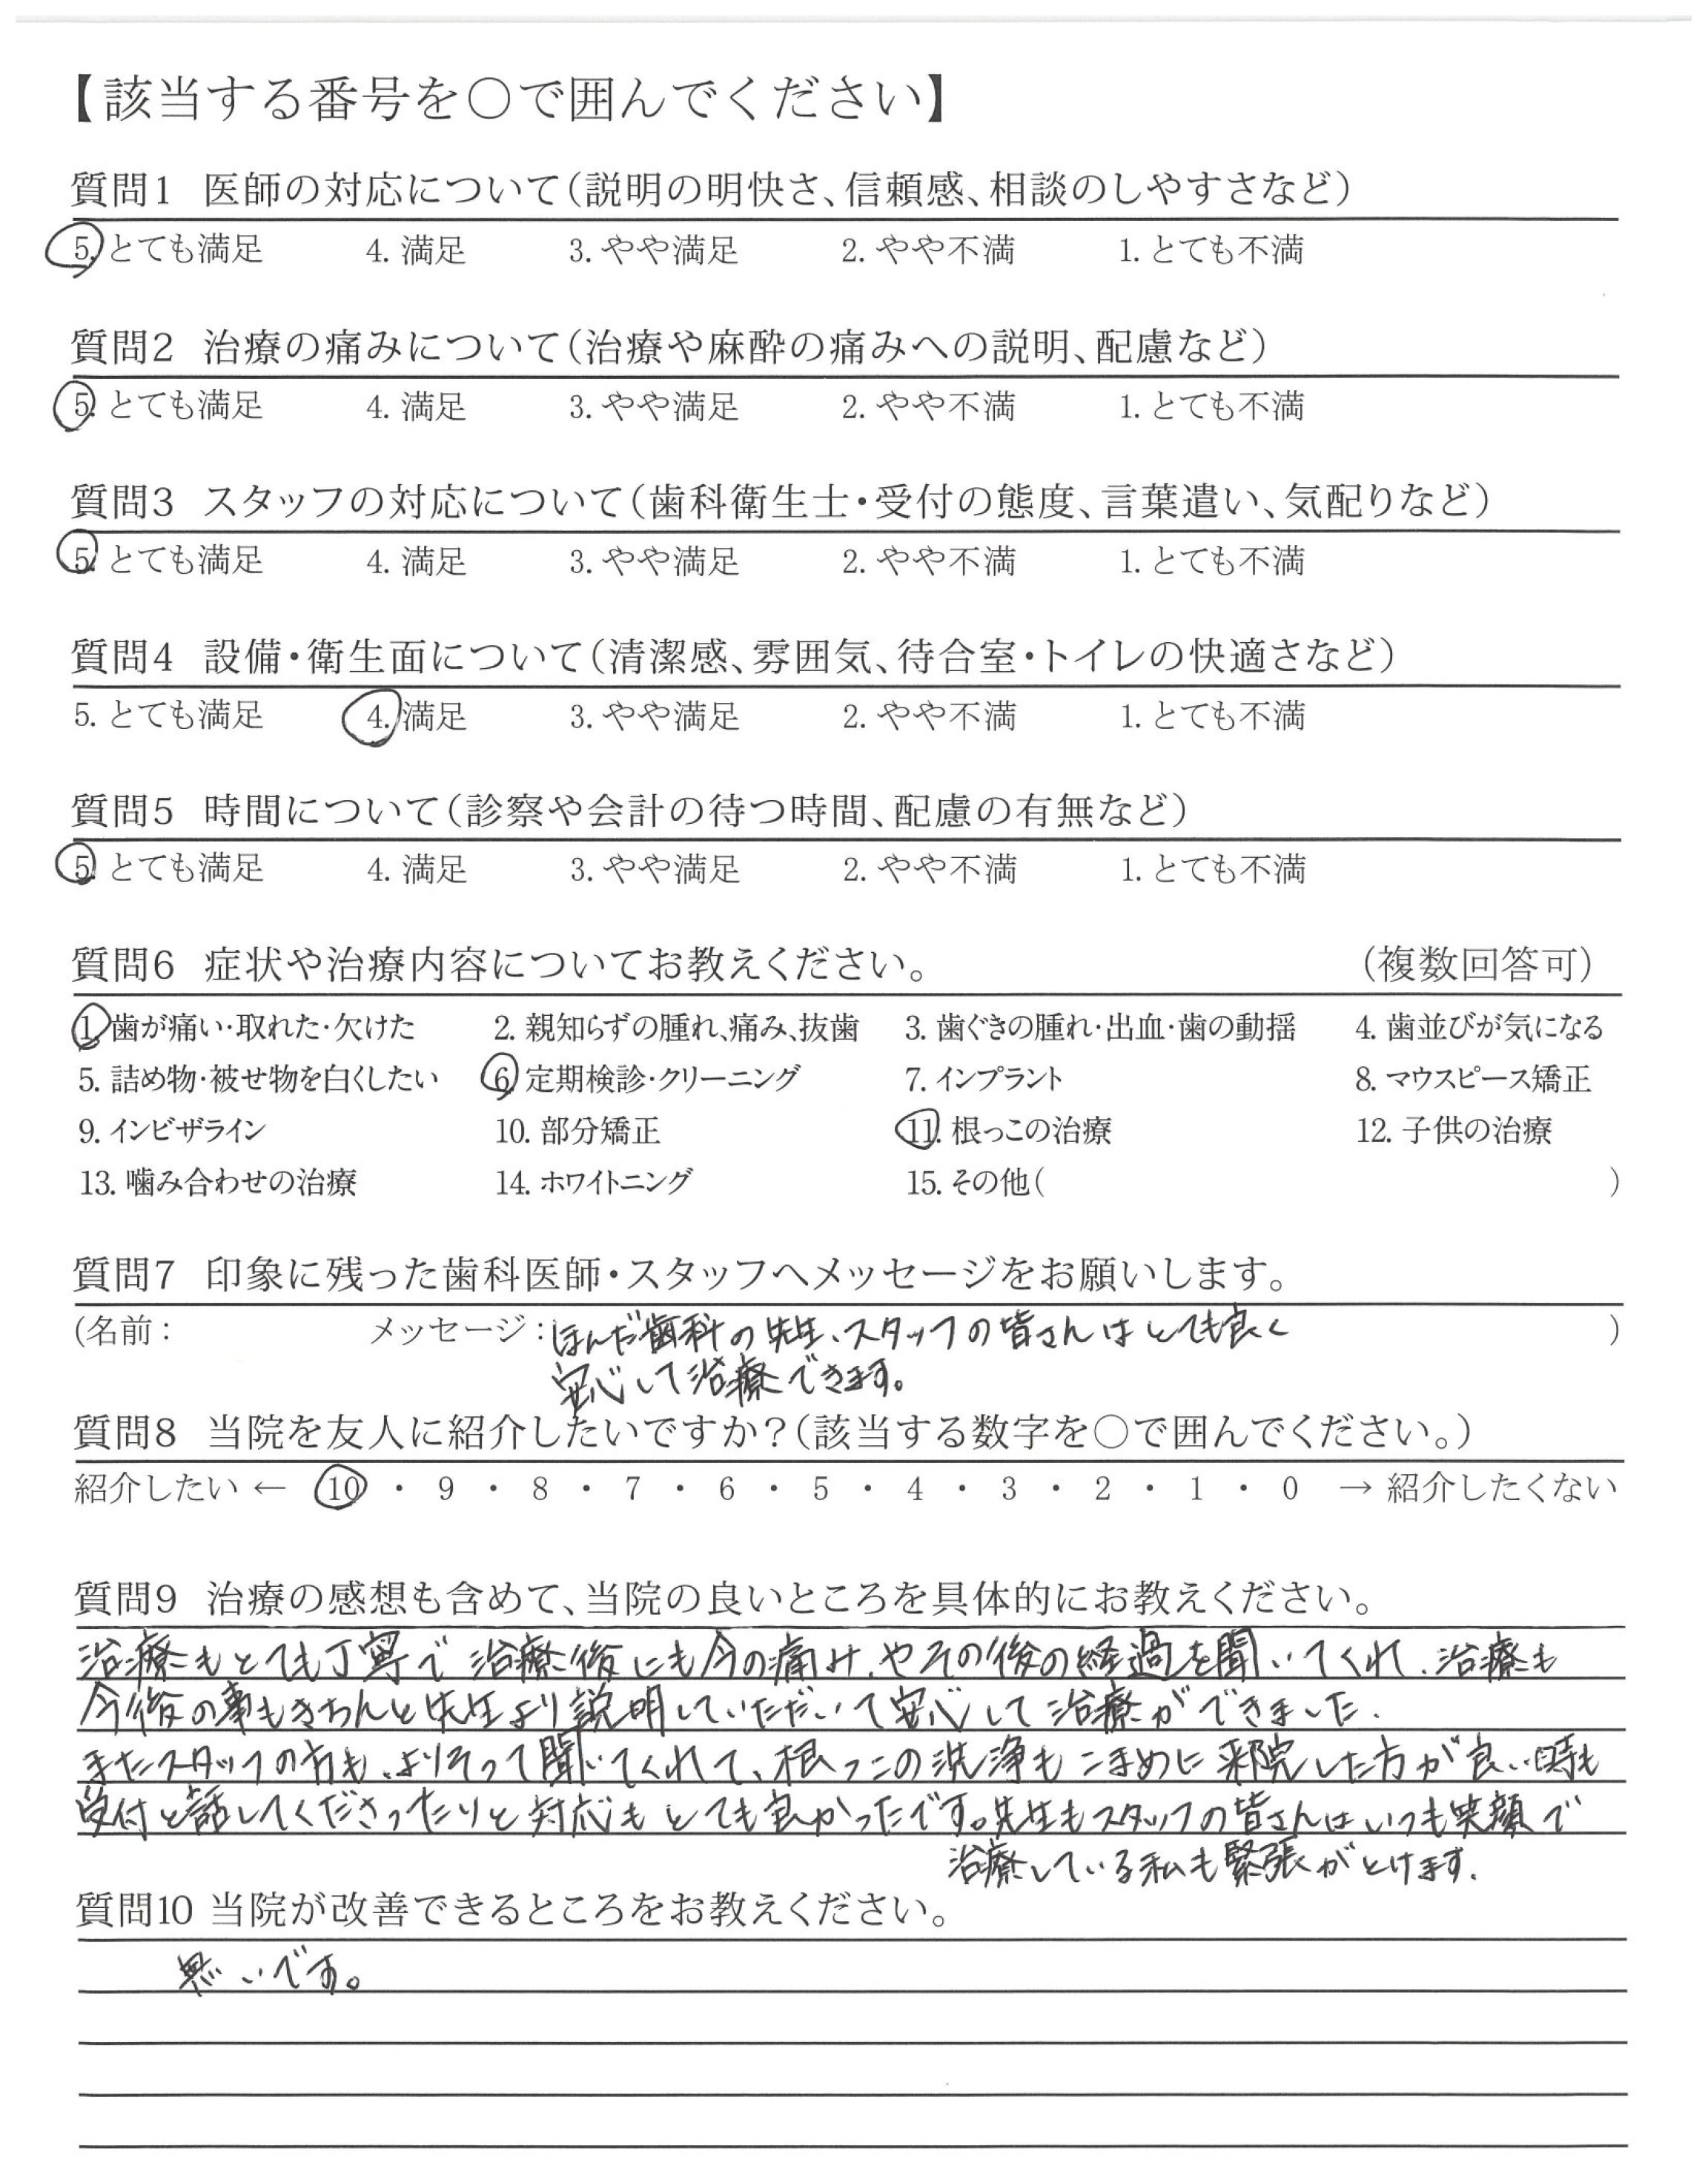 【該当する番号を○で囲んでください】
質問1 医師の対応について(説明の明快さ、信頼感、相談のしやすさなど)
5. とても満足 4. 満足 3. やや満足 2. やや不満 1. とても不満
質問2 治療の痛みについて(治療や麻酔の痛みへの説明、配慮など)
5. とても満足 4. 満足 3. やや満足 2. やや不満 1. とても不満
質問3 スタッフの対応について(歯科衛生士・受付の態度、言葉遣い、気配りなど)
5. とても満足 4. 満足 3. やや満足 2. やや不満 1. とても不満
質問4 設備・衛生面について(清潔感、雰囲気、待合室・トイレの快適さなど)
5. とても満足 4. 満足 3. やや満足 2. やや不満 1. とても不満
質問5 時間について(診察や会計の待つ時間、配慮の有無など)
5. とても満足 4. 満足 3. やや満足 2. やや不満 1. とても不満
質問6 症状や治療内容についてお教えください。 (複数回答可)
1. 歯が痛い・取れた・欠けた 2. 親知らずの腫れ、痛み、抜歯 3. 歯ぐきの腫れ・出血・歯の動揺 4. 歯並びが気になる
5. 詰め物・被せ物を白くしたい 6. 定期検診・クリーニング 7. インプラント 8. マウスピース矯正
9. インビザライン 10. 部分矯正 11. 根っこの治療 12. 子供の治療
13. 噛み合わせの治療 14. ホワイトニング 15. その他( )
質問7 印象に残った歯科医師・スタッフへメッセージをお願いします。
(名前: メッセージ:ほんだ歯科の先生、スタッフの皆さんはとても良く )
安心して治療できます。
質問8 当院を友人に紹介したいですか?(該当する数字を○で囲んでください。)
紹介したい ← 10 ・ 9 ・ 8 ・ 7 ・ 6 ・ 5 ・ 4 ・ 3 ・ 2 ・ 1 ・ 0 → 紹介したくない
質問9 治療の感想も含めて、当院の良いところを具体的にお教えください。
治療もとても丁寧で治療後にも今の痛み、やその後の経過を聞いてくれ、治療も
今後の事もきちんと先生より説明していただいて安心して治療ができました。
またスタッフの方も、よりそって聞いてくれて、根っこの洗浄もこまめに来院した方が良い時も
受付と話してくださったりと対応もとても良かったです。先生もスタッフの皆さんはいつも笑顔で
治療している私も緊張がとけます。
質問10 当院が改善できるところをお教えください。
無いです。